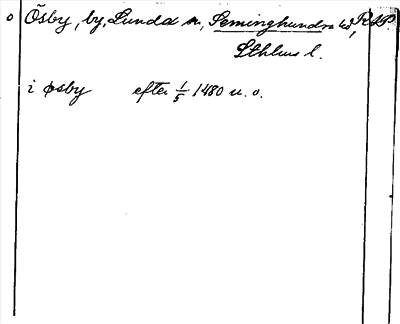 Ösby, by, Lunda sn, Seminghundra hd, RAP.
Sthlms l.
i øsby efter 1/5 1480 u. o.